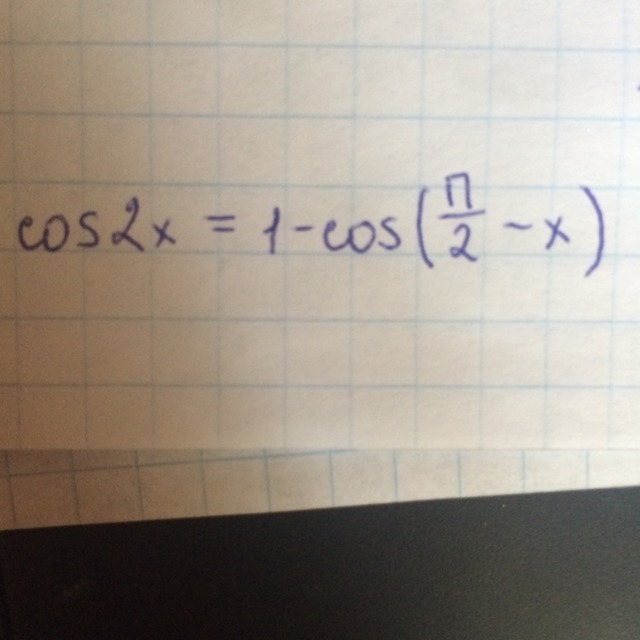 cos2x = 1-cos(π/2 - x)